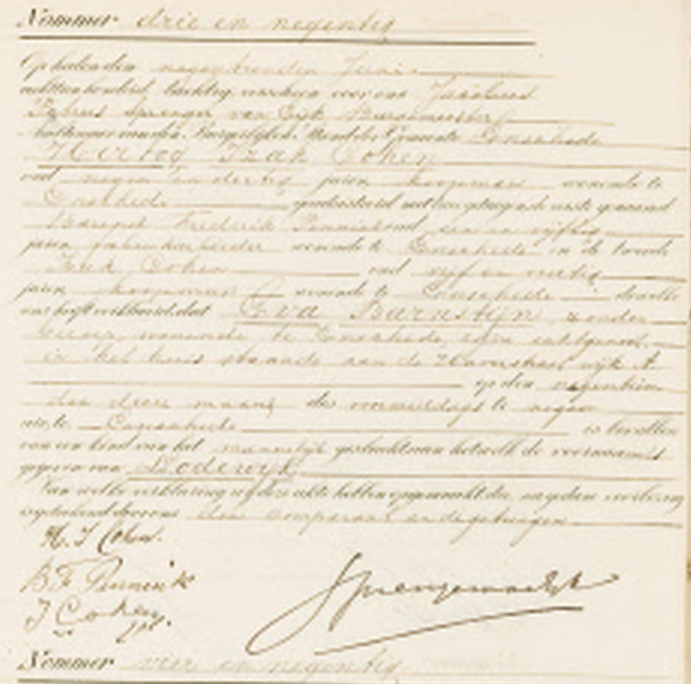 Nommer drie en negentig
Op heden den negentienden Juni
achttienhonderd tachtig, verscheen voor ons Jacobus
Petrus Sprenger van Eijk Burgemeester
Ambtenaar van den Burgerlijken Stand der Gemeente Enschede
Hertog Izak Cohen
oud negen en dertig jaren, koopman wonende te
Enschede geadsisteerd met twee getuigen de eerste genaamd
Frederik Pennink oud een en vijftig
jaren fabriekarbeider wonende te Enschede en de tweede
Izak Cohen oud vijf en
jaren koopman wonende te Enschede dewelke
ons heeft verklaard, dat Eva Barnstijn zonder
beroep, wonende te Enschede, zijne echtgenoot,
in het huis staande aan de wijk A
op den negentien
den dezer maand des voormiddags te negen
ure, te Enschede is bevallen
van een kind van het mannelijk geslacht, aan hetwelk de voornaam
gegeven van Lodewijk
Van welke verklaring wij deze akte hebben opgemaakt die, na gedane voorlezing
is geteekend door ons den comparant en de getuigen
H. I Cohen.
B F Pennink
I Cohen
Nommer vier en negentig